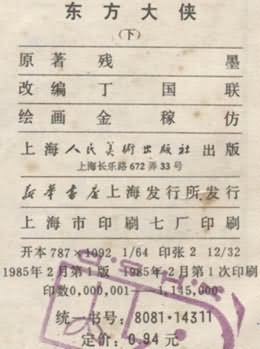 东方大侠
(下)
原著 残墨
改编 丁国联
绘画 金稼仿
上海人民美术出版社出版
上海长乐路672弄33号
新华书店上海发行所发行
上海市印刷七厂印刷
开本787×1092 1/64 印张2 12/32
1985年2月第1版 1985年2月第1次印刷
印数0,000,001—1,145,000
统一书号:8081·14311
定价:0.94元